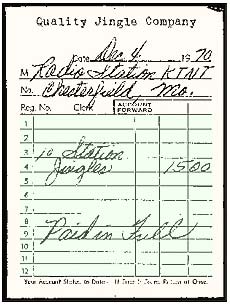 Quality Jingle Company
Date Dec 4 1970
M Radio Station KTNT
No. Chesterfield, Mo.
Reg. No. Clerk ACCOUNT FORWARD
1
2
3 10 Station
4 Jingles 1500
5
6
7
8 Paid in Full
9
10
11
12
Your Account Stated to Date - If Error is Found, Return at Once